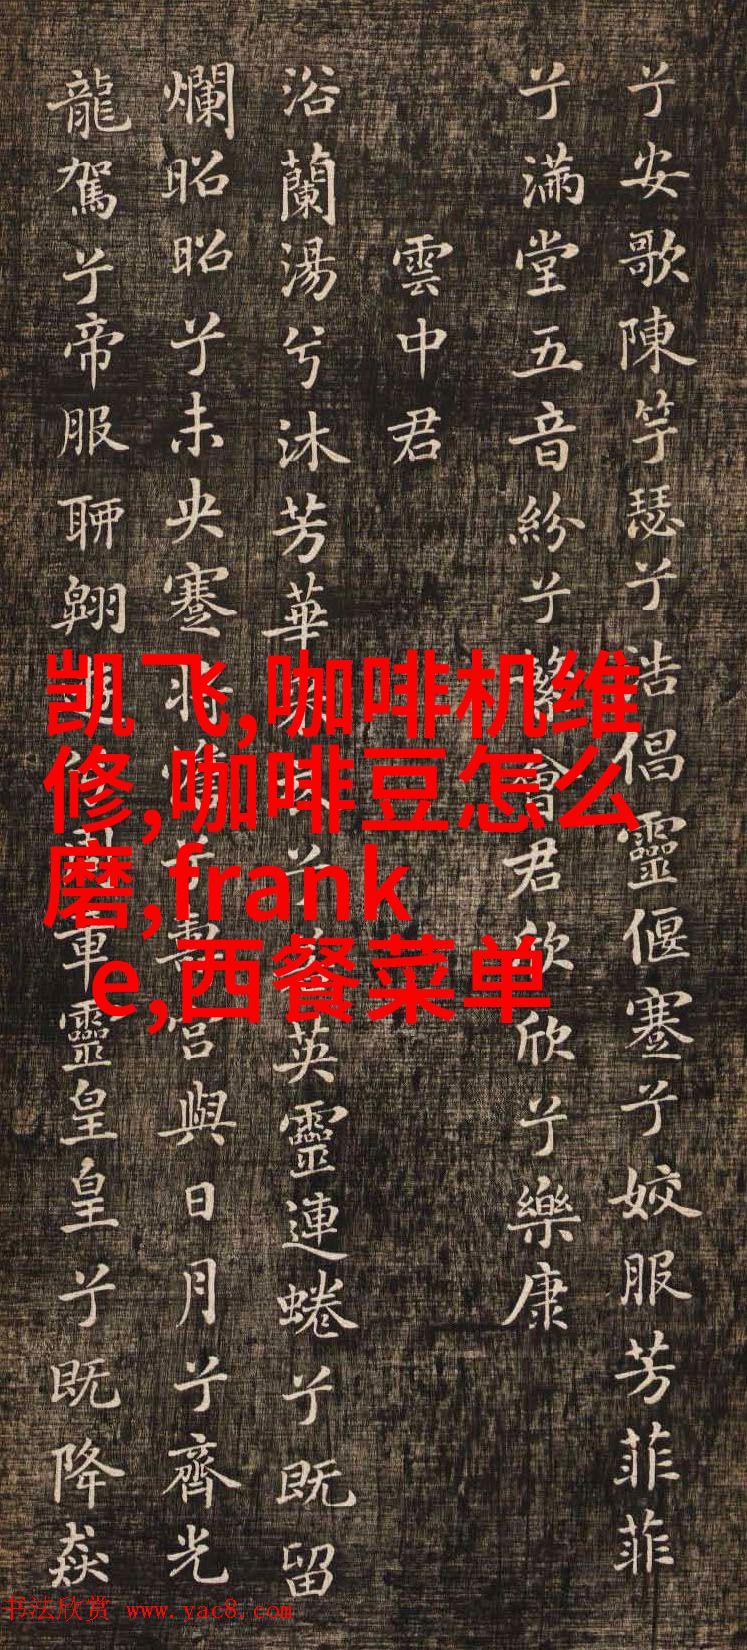 兮安歌陳竽瑟兮浩倡靈偃蹇兮姣服芳菲菲
兮滿堂五音紛兮繁會君欣欣兮樂康
雲中君
浴蘭湯兮沐芳華兮英靈連蜷兮既留
爛昭昭兮未央蹇將憺兮壽宮與日月兮齊光
龍駕兮帝服聊翱周章靈皇皇兮既降猋
凯飞,咖啡机维
修,咖啡豆怎么
磨,frank
e,西餐菜单
书法欣赏 www.yac8.com